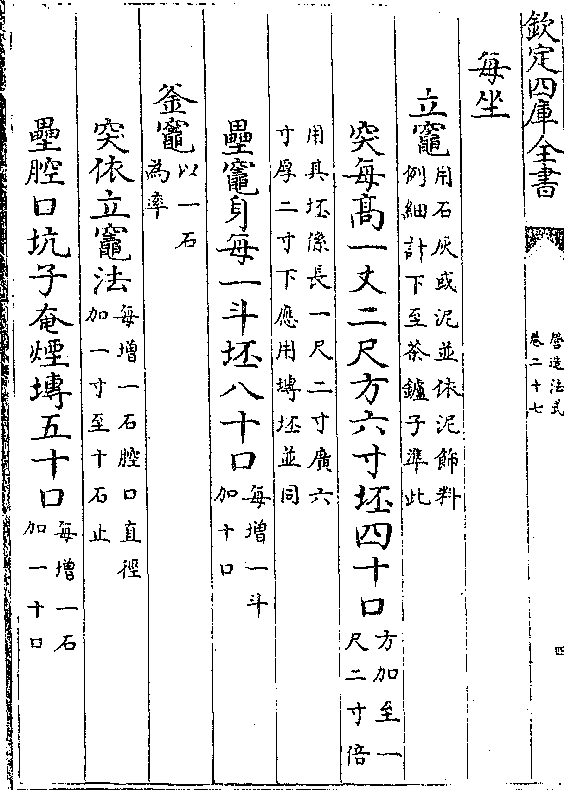 欽定四庫全書
營造法式
卷二十七
四
每坐
立竈用石灰或泥並依泥飾料
例細計下至茶鑪子凖此
突每高一丈二尺方六寸坯四十口方加至一
尺二寸倍
用其坯係長一尺二寸廣六
寸厚二寸下應用塼坯並同
壘竈身每一斗坯八十口每增一斗
加十口
釜竈以一石
為率
突依立竈法每增一石腔口直徑
加一寸至十石止
壘腔口坑子奄煙塼五十口每增一石
加一十口